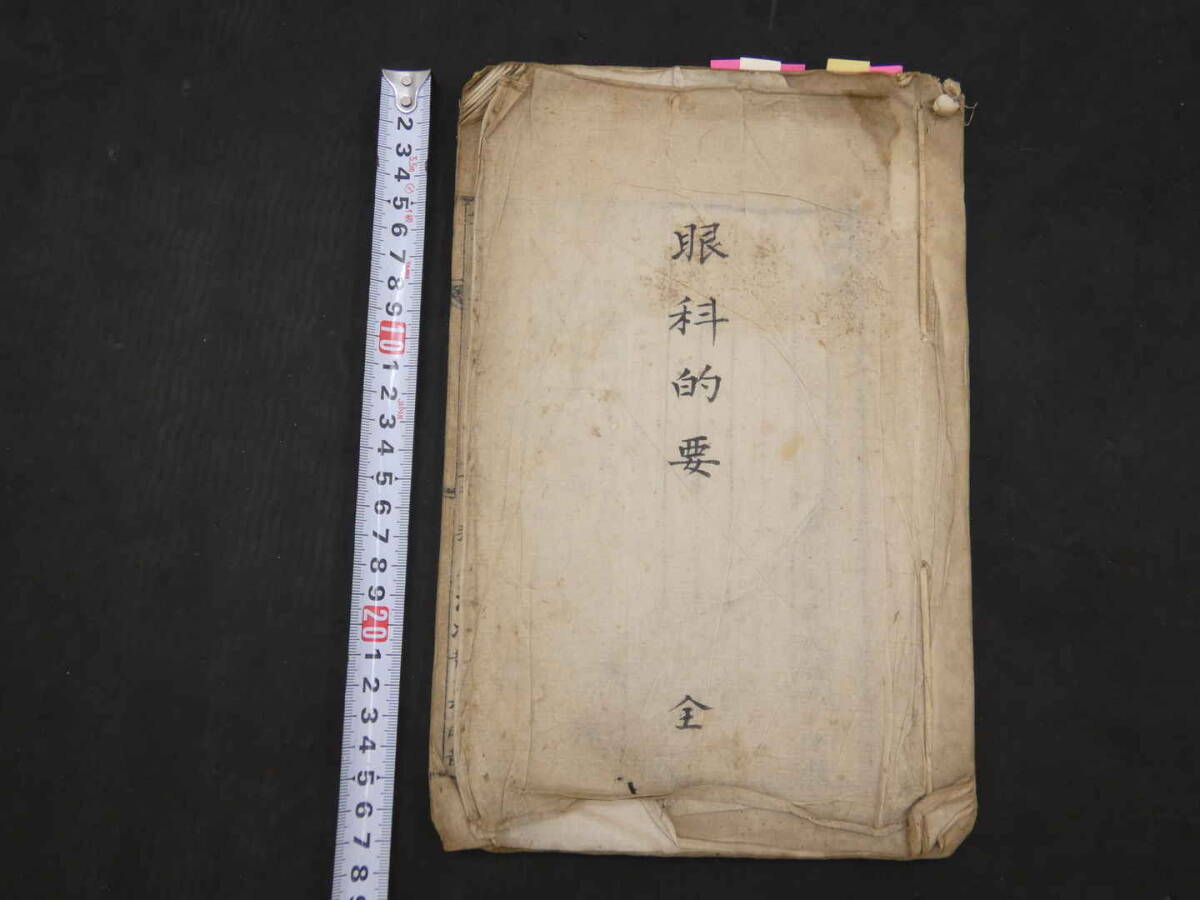 眼科的要
全
2
3
4
5
6
7
8
9
10
1
2
3
4
5
6
7
8
9
20
1
2
3
4
5
6
7
8
9